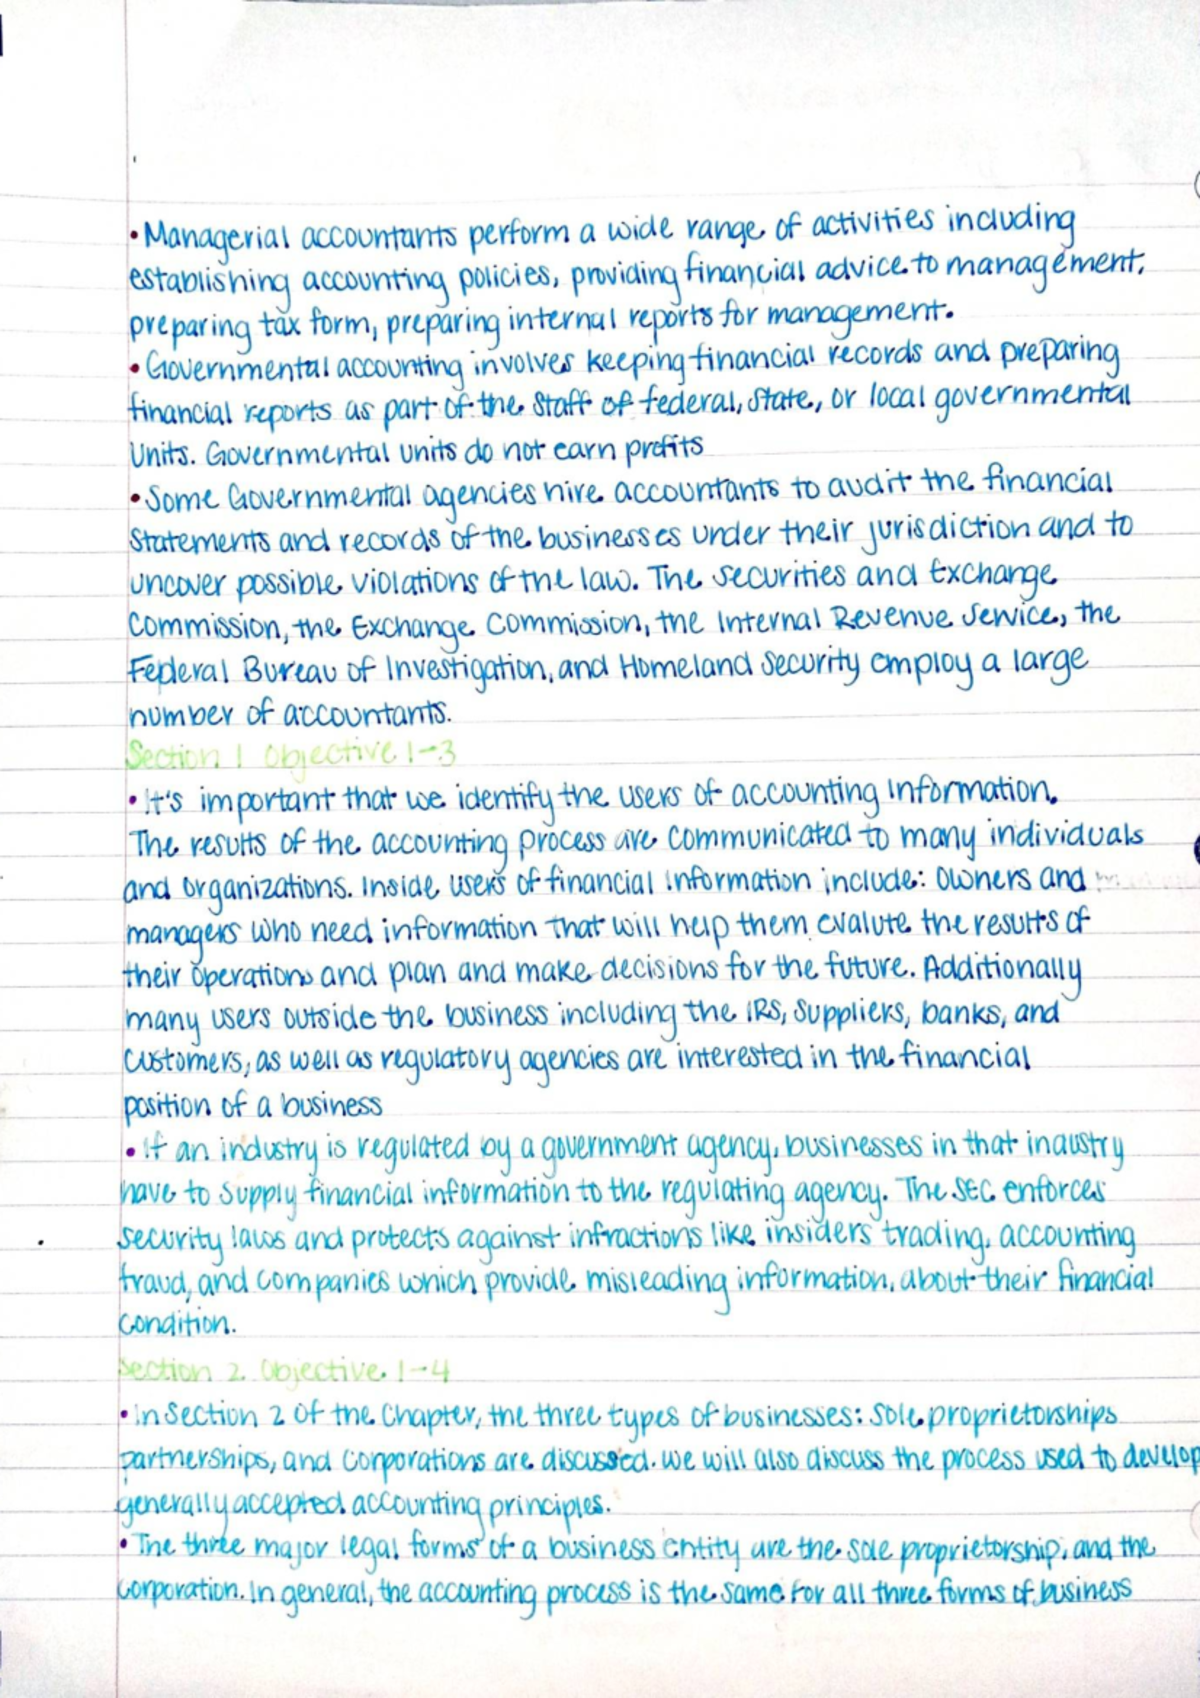 • Managerial accountants perform a wide range of activities including
establishing accounting policies, providing financial advice to management,
preparing tax form, preparing internal reports for management.
• Governmental accounting involves keeping financial records and preparing
financial reports as part of the staff of federal, state, or local governmental
Units. Governmental units do not earn profits
• Some Governmental agencies hire accountants to audit the financial
Statements and records of the businesses under their jurisdiction and to
uncover possible violations of the law. The securities and Exchange
Commission, the Exchange Commission, the Internal Revenue Service, the
Federal Bureau of Investigation, and Homeland Security employ a large
number of accountants.
Section 1 Objective 1-3
• It's important that we identify the users of accounting information.
The results of the accounting process are communicated to many individuals
and organizations. Inside users of financial information include: Owners and
managers who need information that will help them evalute the results of
their operations and plan and make decisions for the future. Additionally
many users outside the business including the IRS, Suppliers, banks, and
customers, as well as regulatory agencies are interested in the financial
position of a business
• If an industry is regulated by a government agency, businesses in that industry
have to supply financial information to the regulating agency. The SEC enforces
security laws and protects against infractions like insiders trading, accounting
fraud, and companies which provide misleading information, about their financial
condition.
Section 2 Objective 1-4
• In Section 2 of the Chapter, the three types of businesses: Sole proprietorships
partnerships, and Corporations are discussed. we will also discuss the process used to develop
generally accepted accounting principles.
• The three major legal forms of a business entity are the sole proprietorship, and the
corporation. In general, the accounting process is the same for all three forms of business